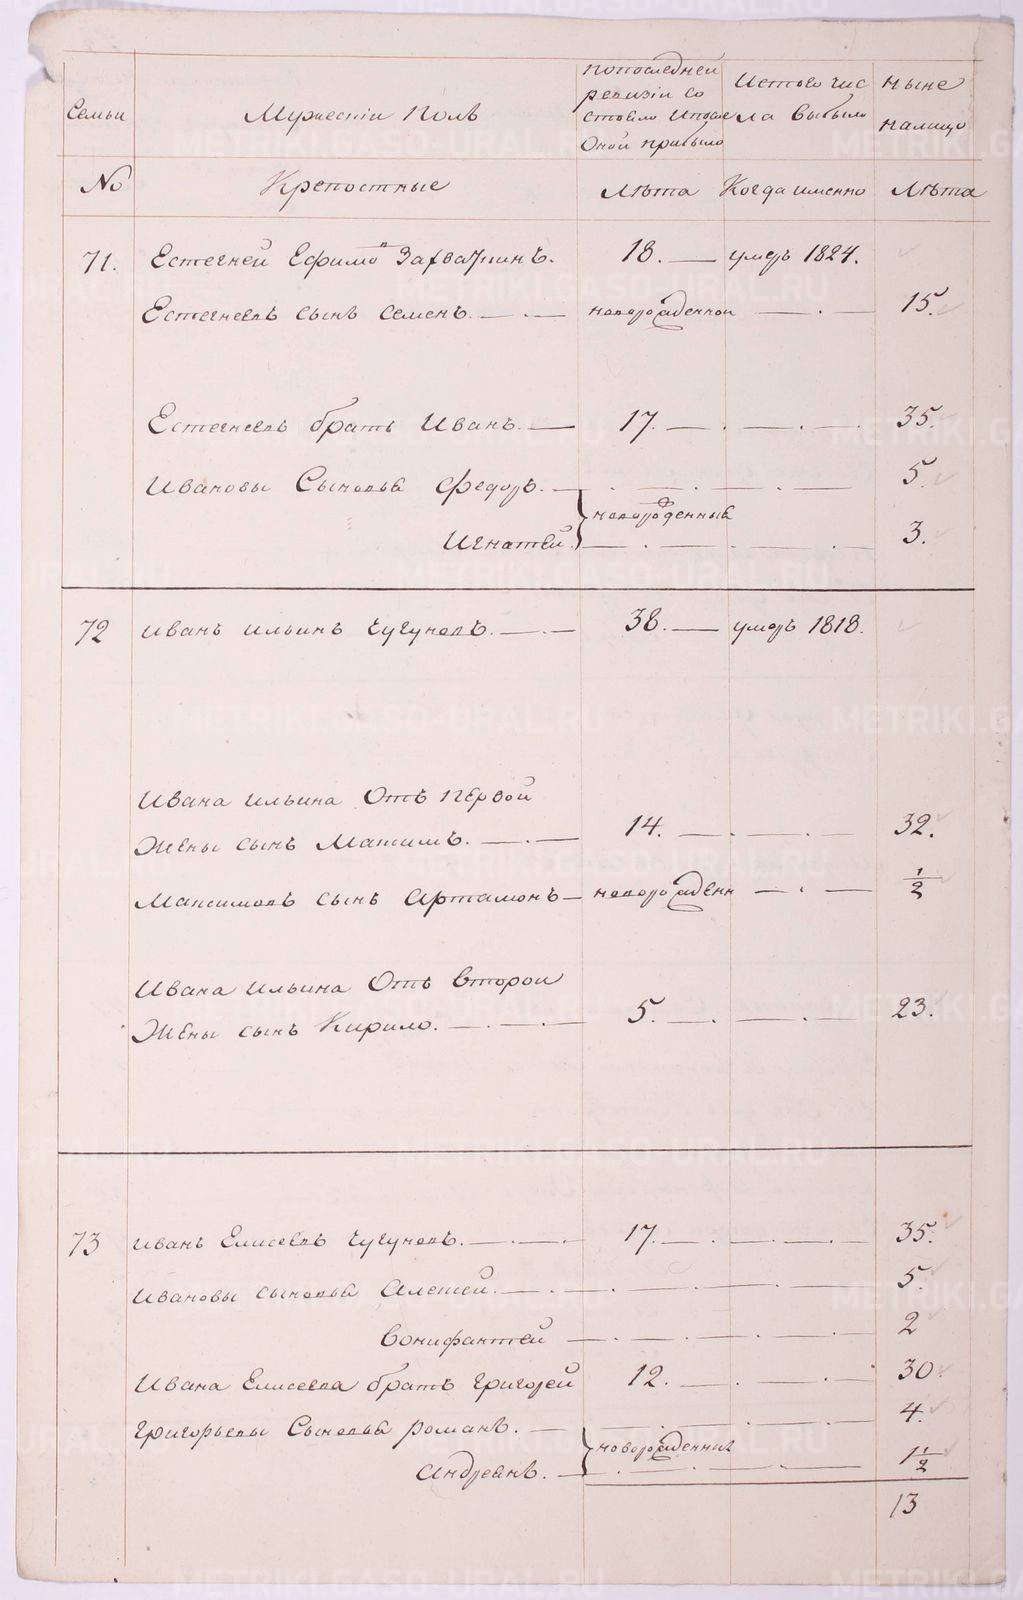 Семьи
Мужескій Полъ
попоследней
ревизіи со
стояло Ипосле
Оной прибыло
Истого чис
ла Выбыло
Ныне
налицо
№
Крепостные
Лѣта
Когда именно
Лѣта
71. Евстегней Ефимовъ Захваткинъ. 18. — умеръ 1824.
Евстегнеевъ сынъ Семенъ. — новорожденной — 15.
Евстегнеевъ братъ Иванъ. — 17. — 35.
Ивановы Сыновья Федоръ. — 5.
новорожденныя
Игнатей. — 3.
72 Иванъ Ильинъ Чугуновъ. — 38. — умеръ 1818.
Ивана Ильина Отъ первой
Жены сынъ Максимъ. — 14. — 32.
Максимовъ сынъ Артамонъ — новорожденн — 1/2
Ивана Ильина Отъ Второй
Жены сынъ Кирило. — 5. — 23.
73 Иванъ Елисеевъ Чугуновъ. — 17. — 35.
Ивановы сыновья Алексей. — 5.
Вонифантей — 2
Ивана Елисеева братъ Григорей 12. — 30.
Григорьевы Сыновья Романъ. — 4.
новорожденныя
Андреянъ. — 1 1/2
13
METRIKI.GASO-URAL.RU